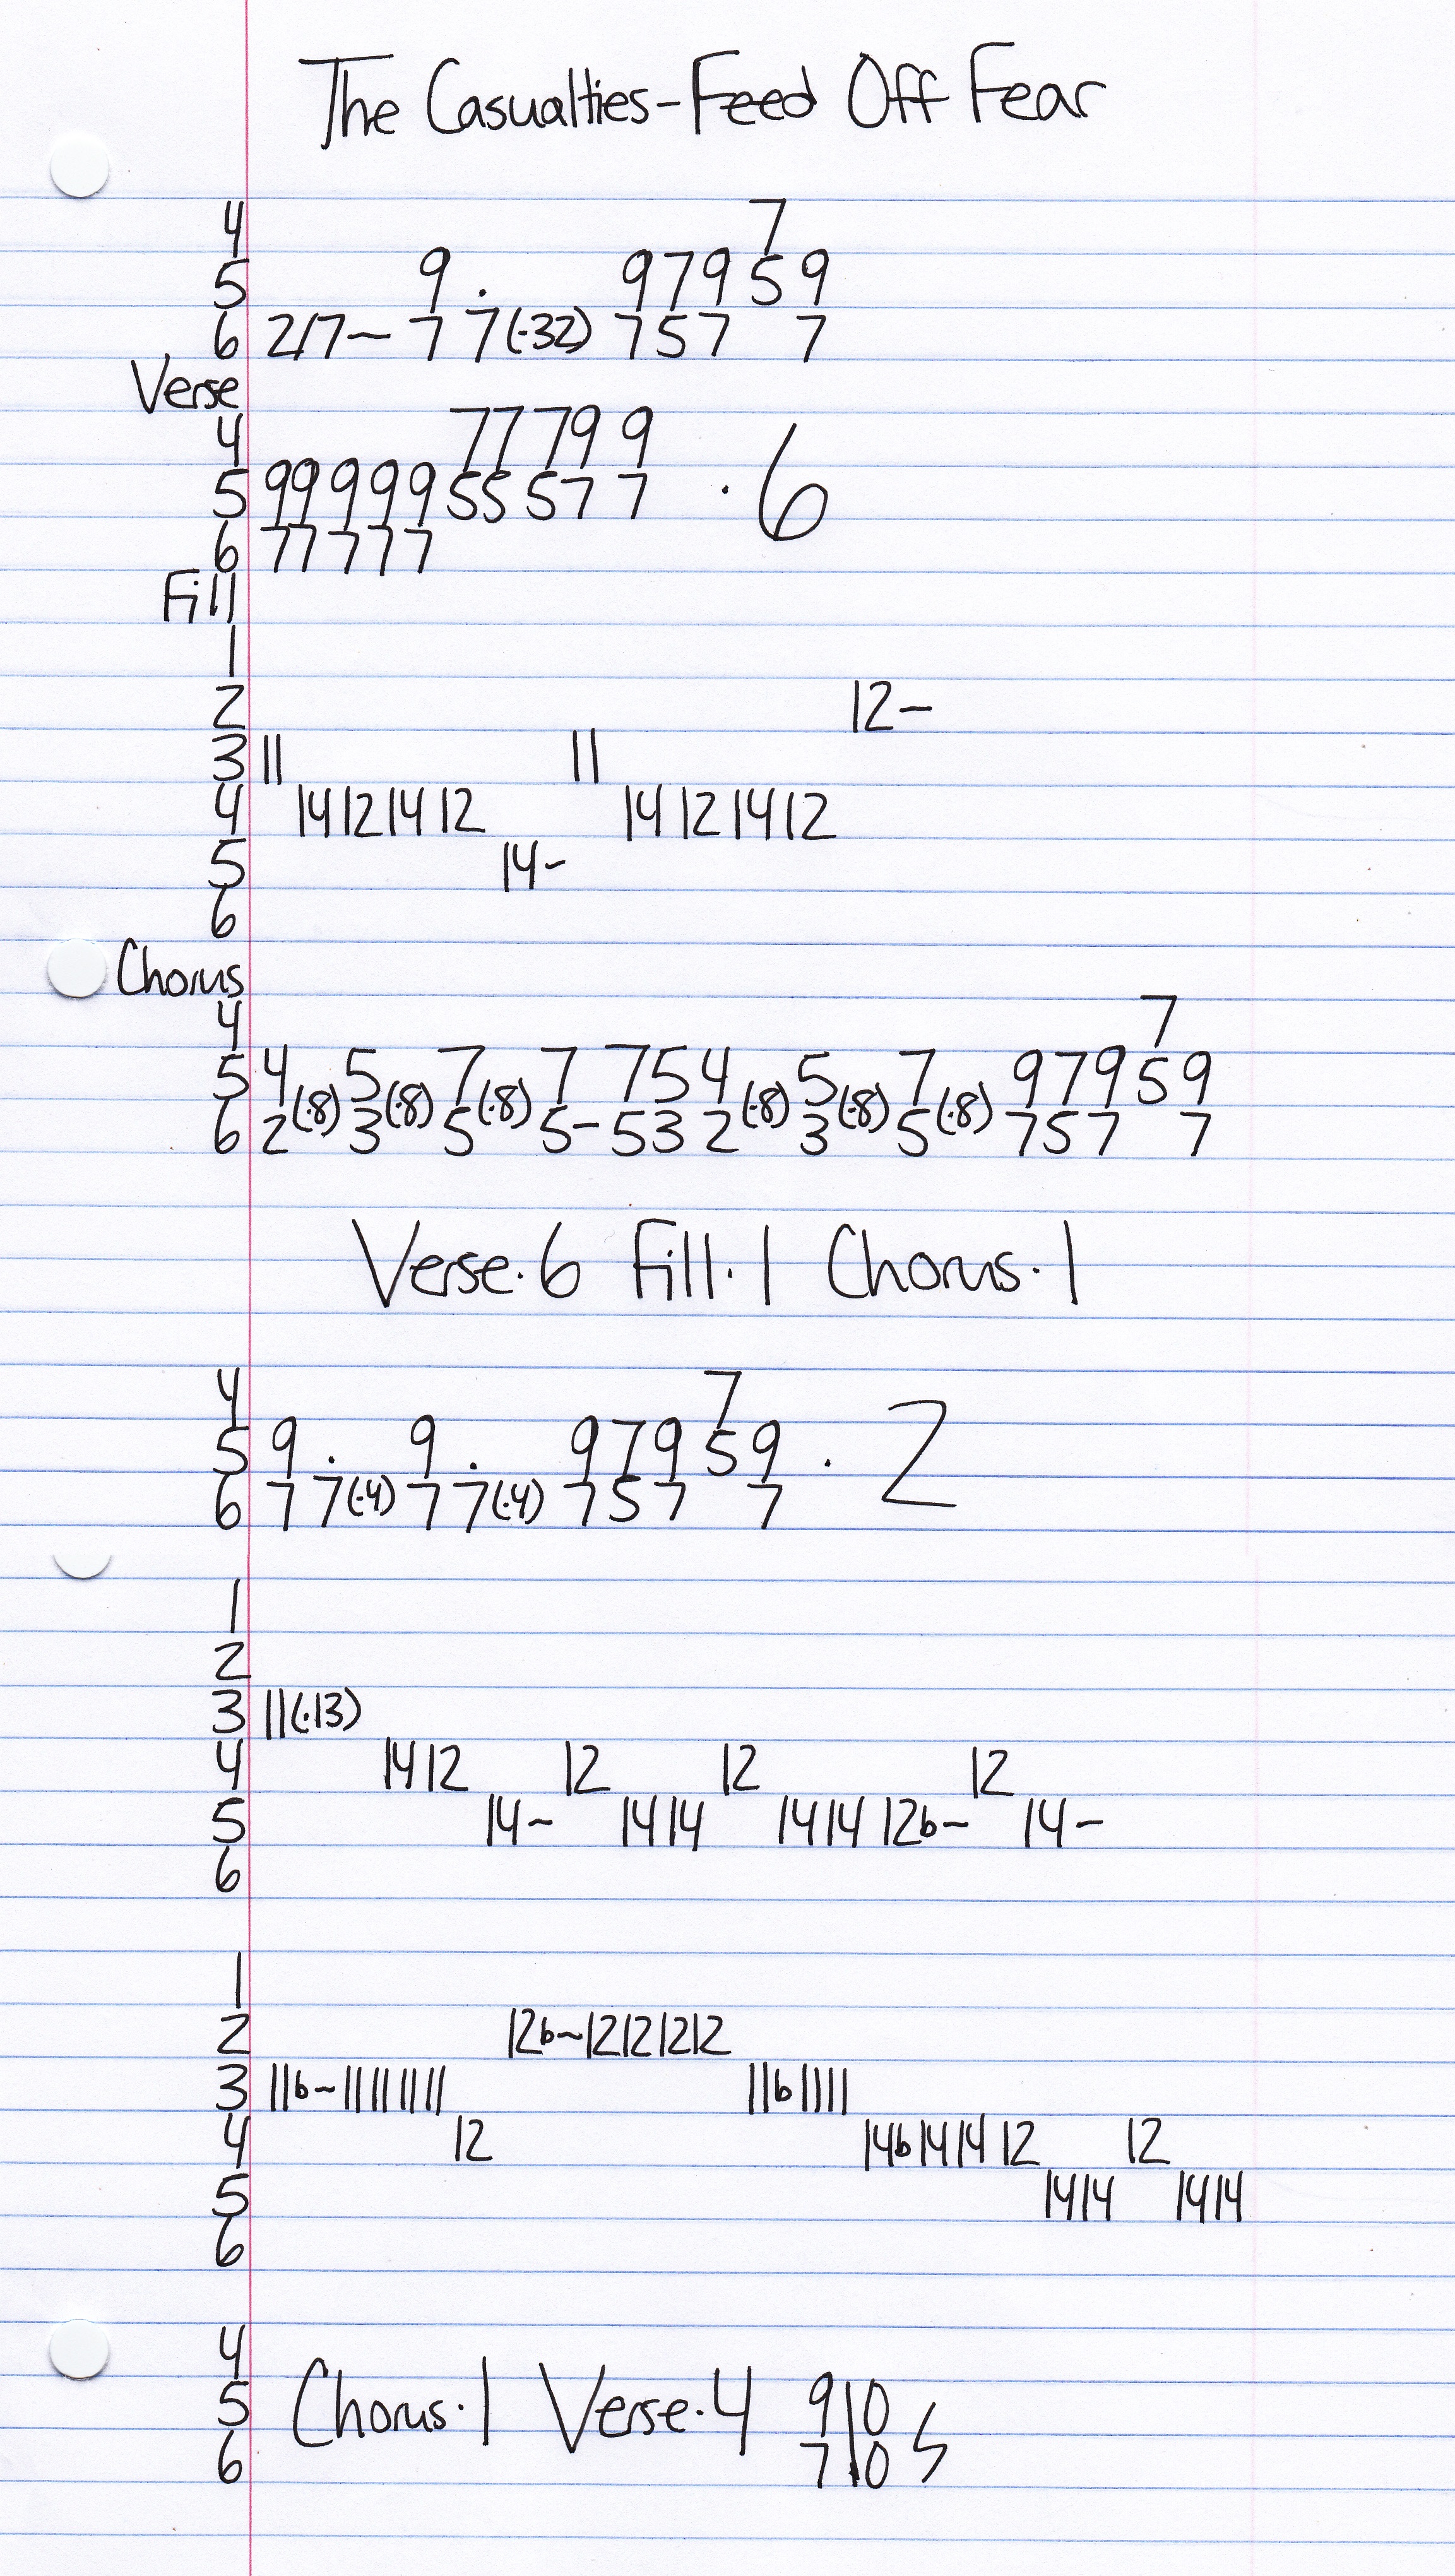 The Casualties-Feed Off Fear
4 7
5 9 . 9 7 9 5 9
6 2/7~ 7 7(·32) 7 5 7 7
Verse
4 7 7 7 9 9
5 9 9 9 9 9 5 5 5 7 7 · 6
6 7 7 7 7 7
Fill
1
2 12-
3 11 11
4 14 12 14 12 14 12 14 12
5 14-
6
Chorus
4 7
5 4 5 7 7 7 5 4 5 7 9 7 9 5 9
(·8) (·8) (·8) (·8) (·8) (·8)
6 2 3 5 5- 5 3 2 3 5 7 5 7 7
Verse·6 Fill·1 Chorus·1
4 7
5 9 . 9 . 9 7 9 5 9 · 2
6 7 7(·4) 7 7(·4) 7 5 7 7
1
2
3 11(·13)
4 14 12 12 12 12
5 14~ 14 14 14 14 12b~ 14-
6
1
2 12b~12 12 12 12
3 11b~11 11 11 11 11b 11 11
4 12 14b 14 14 12 12
5 14 14 14 14
6
4
5 Chorus·1 Verse·4 9 10
6 7 10